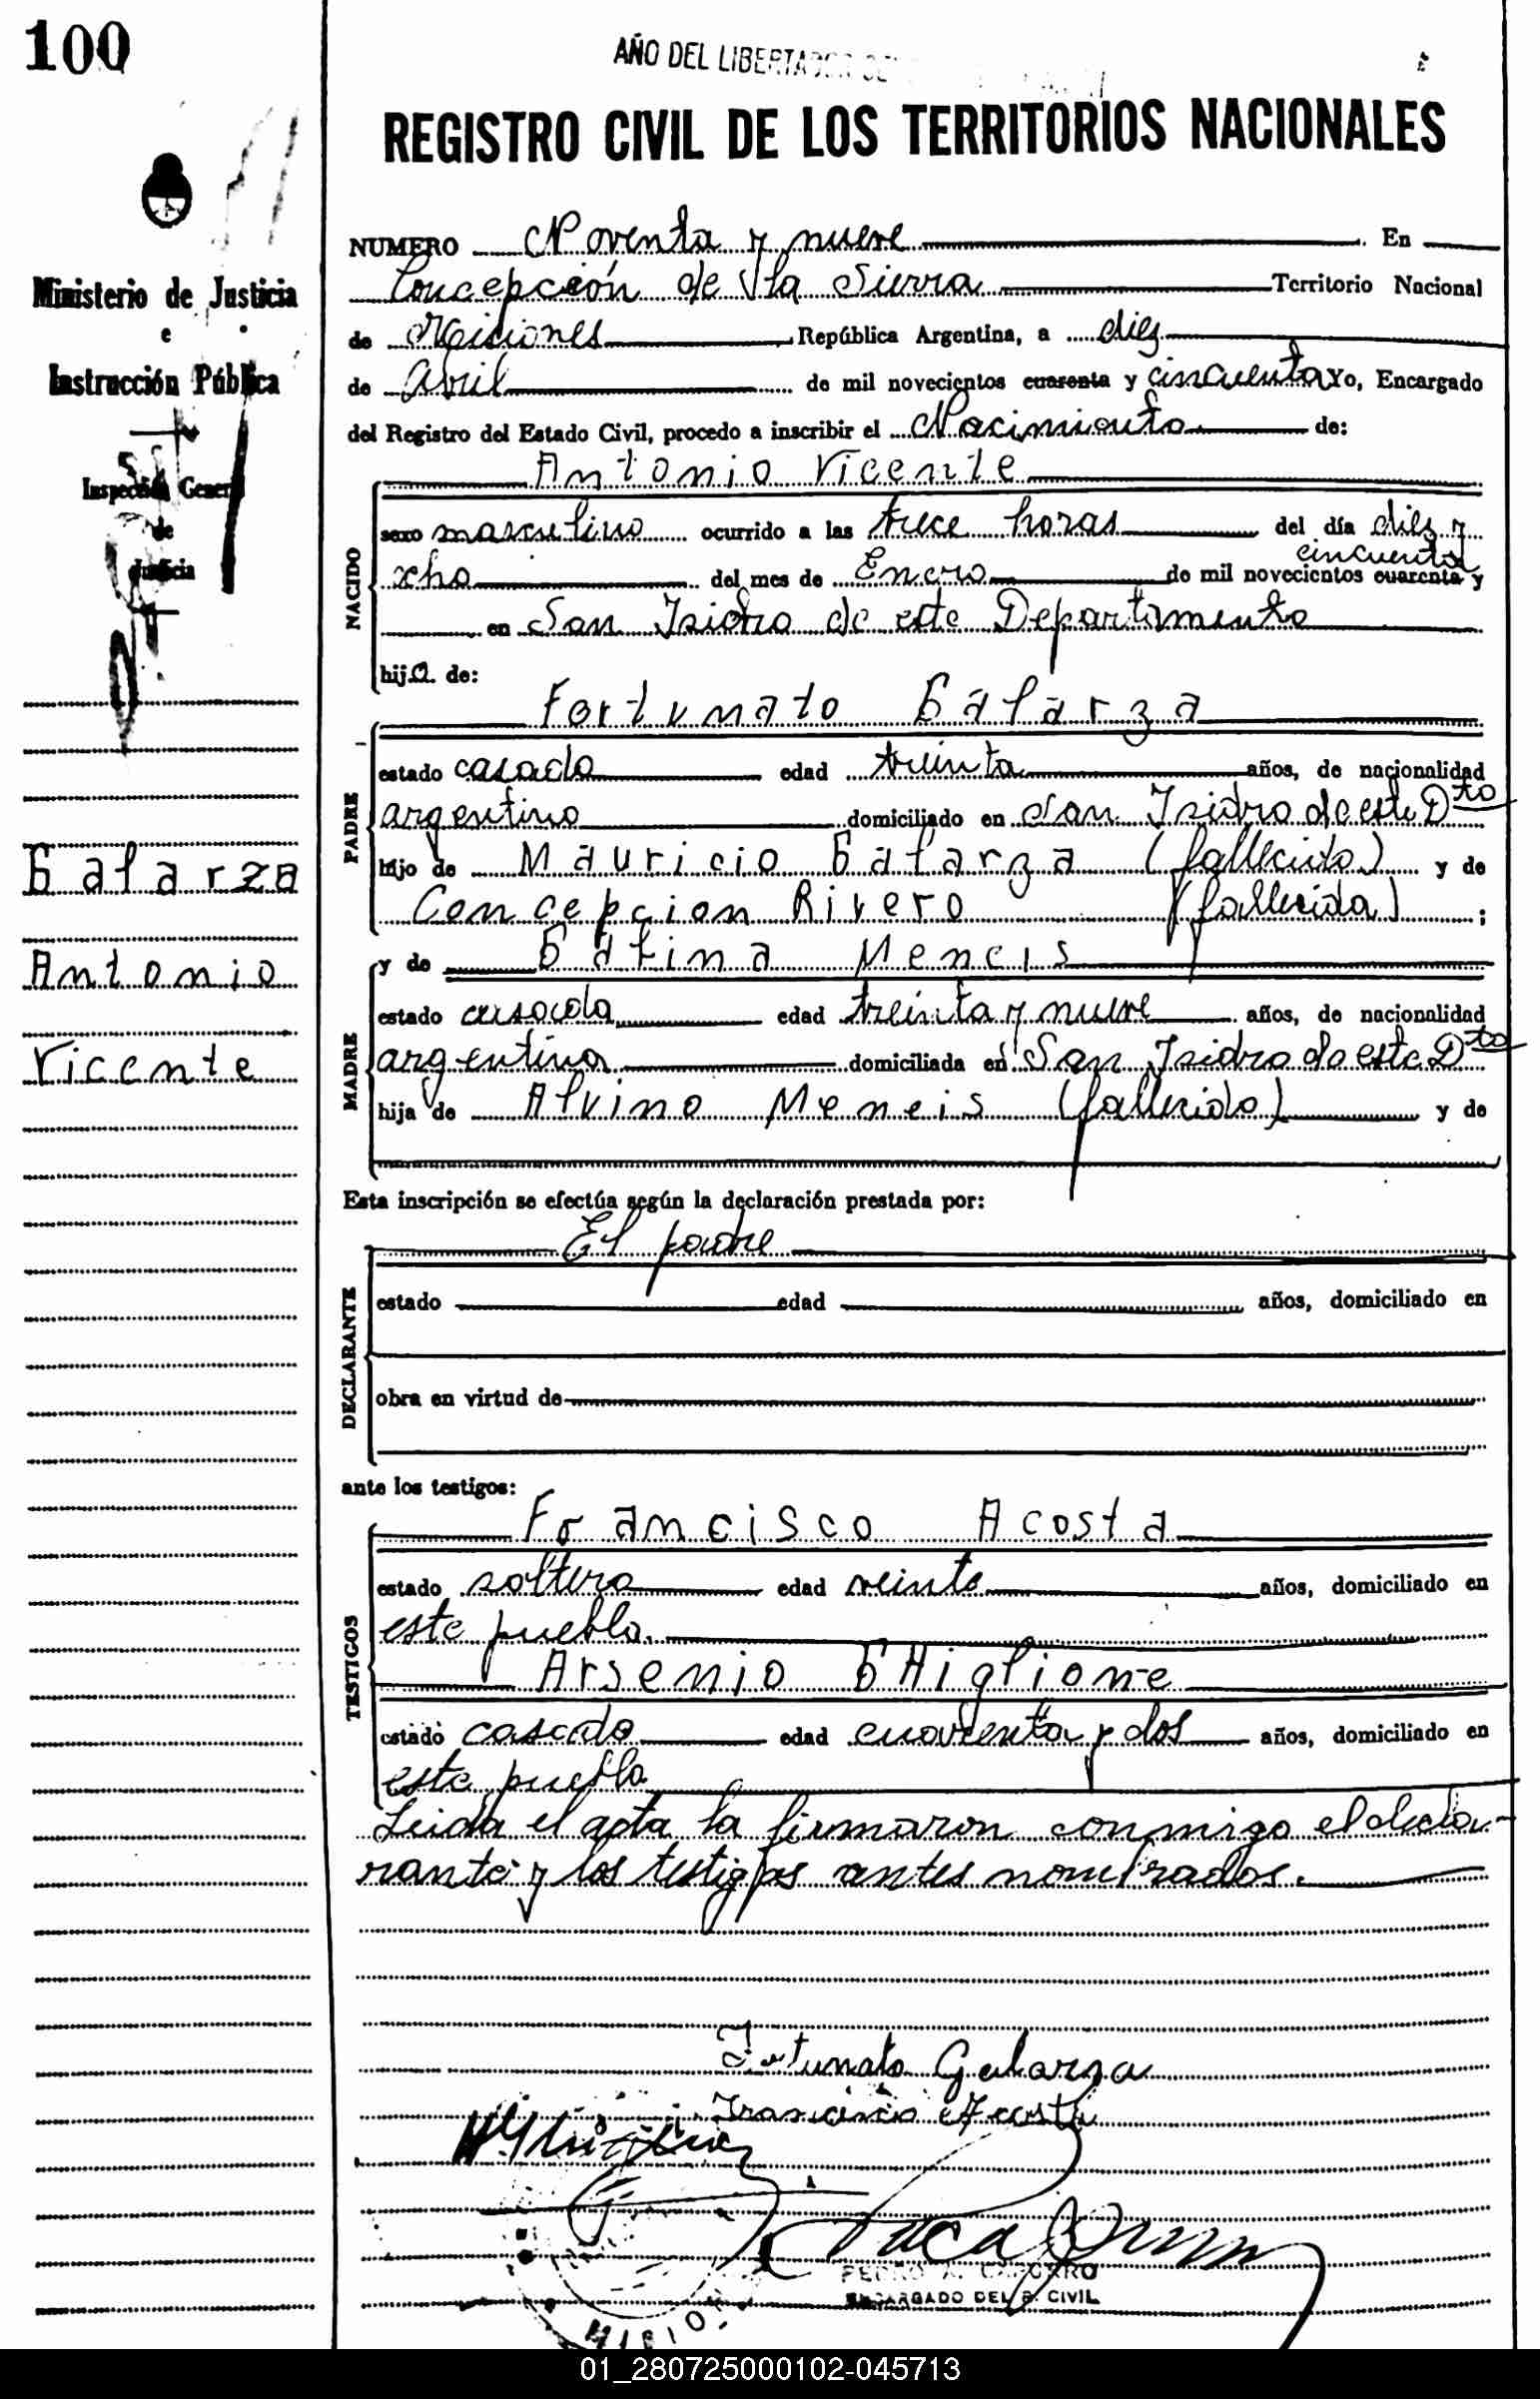 100
AÑO DEL LIBERTADOR
REGISTRO CIVIL DE LOS TERRITORIOS NACIONALES
Ministerio de Justicia
e
Instrucción Pública
Inspección General
de
Justicia
Galarza
Antonio
Vicente
NUMERO Noventa y nueve. En
Concepción de la Sierra Territorio Nacional
de Misiones, República Argentina, a diez
de Abril de mil novecientos cuarenta y cincuenta Yo, Encargado
del Registro del Estado Civil, procedo a inscribir el Nacimiento de:
Antonio Vicente
NACIDO
sexo masculino ocurrido a las trece horas del día diez y
cincuenta
ocho del mes de Enero de mil novecientos cuarenta y
en San Isidro de este Departamento
hijo de:
Fortunato Galarza
PADRE
estado casado edad treinta años, de nacionalidad
argentino domiciliado en San Isidro de este Dto
hijo de Mauricio Galarza (fallecido) y de
Concepcion Rivero (fallecida);
y de Meneis
MADRE
estado casada edad treinta y nueve años, de nacionalidad
argentina domiciliada en San Isidro de este Dto
hija de Alvino Meneis (fallecido) y de
Esta inscripción se efectúa según la declaración prestada por:
El padre
DECLARANTE
estado edad años, domiciliado en
obra en virtud de
ante los testigos:
Francisco Acosta
TESTIGOS
estado soltero edad veinte años, domiciliado en
este pueblo.
Arsenio GHiglione
estado casado edad cuarenta y dos años, domiciliado en
este pueblo
Leida el acta la firmaron conmigo el decla-
rante y los testigos antes nombrados.
Fortunato Galarza
Francisco Acosta
ENCARGADO DEL R. CIVIL
01_280725000102-045713